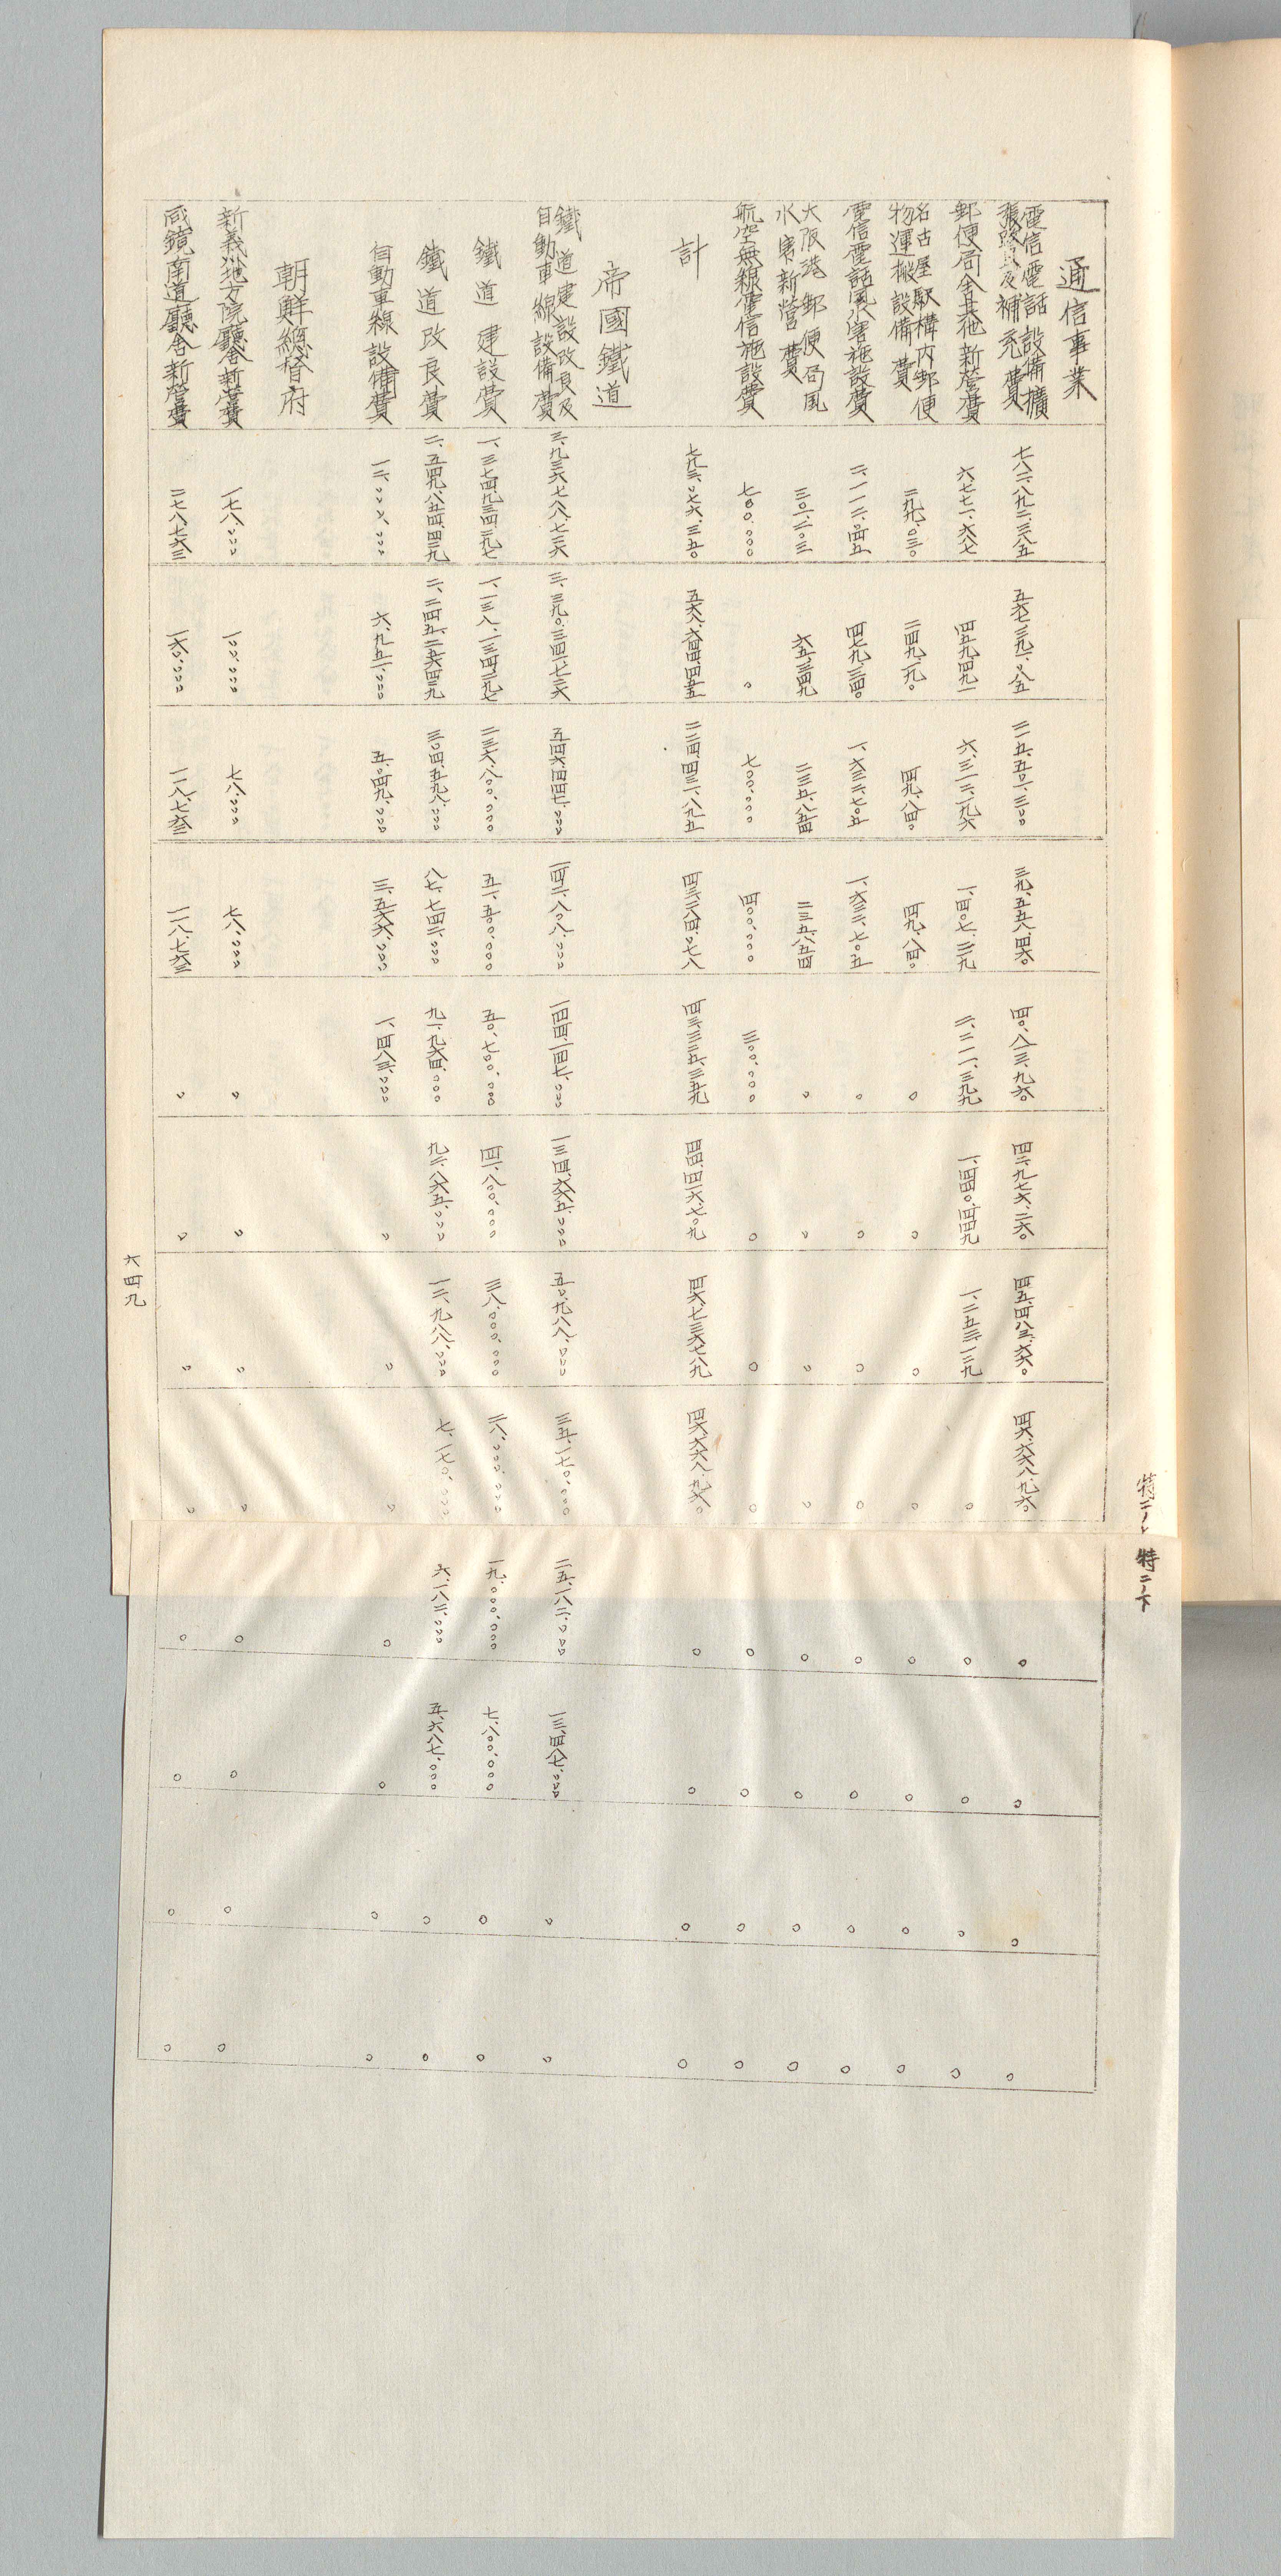 通信事業
電信電話設備擴
張路及補充費
七八二、八九二、三八五
五六七、三九一、〇八五
二一五、五〇一、三〇〇
三九、五五八、四六〇
四〇、八一三、九六〇
四二、九七六、二六〇
四五、四八三、六六〇
四六、六六八、九六〇
〇
〇
〇
〇
郵便局舍其他新營費
六、七七一、六八七
四五九、四九一
六、三一二、一九六
一、四〇七、二二九
二、二一一、三九九
一、四四〇、四四九
一、二五三、一三九
〇
〇
〇
〇
〇
名古屋駅構内郵便
物運搬設備費
二九九、〇三〇
二四九、一九〇
四九、八四〇
四九、八四〇
〇
〇
〇
〇
〇
〇
〇
〇
電信電話風水害施設費
二、一一二、〇四五
四七九、三四〇
一、六三二、七〇五
一、六三二、七〇五
〇
〇
〇
〇
〇
〇
〇
〇
大阪港郵便局風
水害新營費
三〇一、二〇三
六五、三四九
二三五、八五四
二三五、八五四
〇
〇
〇
〇
〇
〇
〇
〇
航空無線電信施設費
七〇〇、〇〇〇
〇
七〇〇、〇〇〇
四〇〇、〇〇〇
三〇〇、〇〇〇
〇
〇
〇
〇
〇
〇
〇
計
七九三、〇七六、三五〇
五六八、六四四、四五五
二二四、四三一、八九五
四三、二八四、〇七八
四三、三二五、三五九
四四、四一六、七〇九
四六、七三六、七八九
四六、六六八、九六〇
〇
〇
〇
〇
帝國鐵道
鐵道建設改良及
自動車線設備費
三、九三六、七八八、七三六
三、三九〇、三四一、七三六
五四六、四四七、〇〇〇
一四二、八〇八、〇〇〇
一四四、一四七、〇〇〇
一三四、六六五、〇〇〇
五〇、九八八、〇〇〇
三五、一七〇、〇〇〇
二五、一八二、〇〇〇
一三、四八七、〇〇〇
〇
〇
鐵道建設費
一、三七四、九三四、二九七
一、一三八、一三四、二九七
二三六、八〇〇、〇〇〇
五一、五〇〇、〇〇〇
五〇、七〇〇、〇〇〇
四一、八〇〇、〇〇〇
三八、〇〇〇、〇〇〇
二八、〇〇〇、〇〇〇
一九、〇〇〇、〇〇〇
七、八〇〇、〇〇〇
〇
〇
鐵道改良費
二、五四九、八五四、四三九
二、二四五、二五六、四三九
三〇四、五九八、〇〇〇
八七、七四二、〇〇〇
九一、九六四、〇〇〇
九二、八六五、〇〇〇
一二、九八八、〇〇〇
七、一七〇、〇〇〇
六、一八二、〇〇〇
五、六八七、〇〇〇
〇
〇
自動車線設備費
一二、〇〇〇、〇〇〇
六、九五一、〇〇〇
五、〇四九、〇〇〇
三、五六六、〇〇〇
一、四八三、〇〇〇
〇
〇
〇
〇
〇
〇
〇
朝鮮總督府
新義州地方院廳舍新營費
一七八、〇〇〇
一〇〇、〇〇〇
七八、〇〇〇
七八、〇〇〇
〇
〇
〇
〇
〇
〇
〇
〇
咸鏡南道廳舍新營費
二七八、七六三
一六〇、〇〇〇
一一八、七六三
一一八、七六三
〇
〇
〇
〇
〇
〇
〇
〇
六四九
特二ノ上
特二ノ下